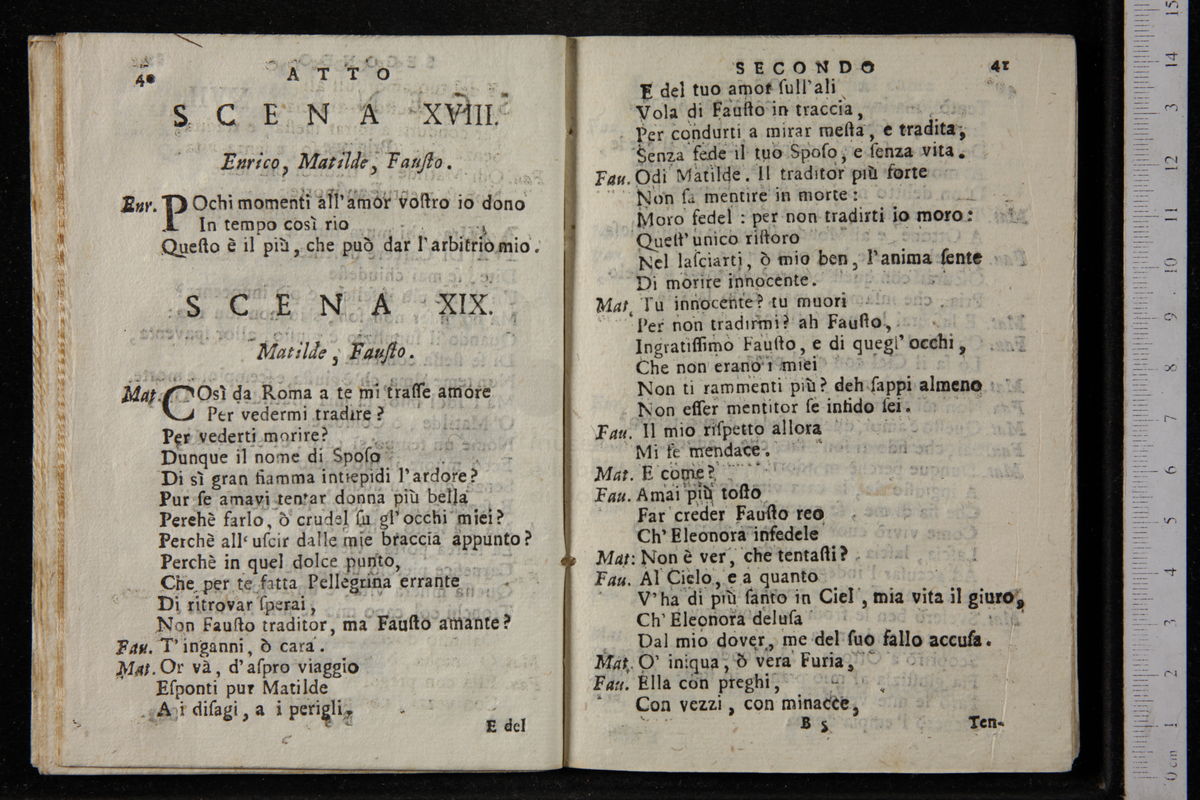 40
ATTO
SCENA XVIII.
Enrico, Matilde, Fauſto.
Enr. POchi momenti all'amor voſtro io dono
In tempo così rio
Queſto è il più, che può dar l'arbitrio mio.
SCENA XIX.
Matilde, Fauſto.
Mat. COsì da Roma a te mi traſſe amore
Per vedermi tradire?
Per vederti morire?
Dunque il nome di Spoſo
Di sì gran fiamma intiepidì l'ardore?
Pur ſe amavi tentar donna più bella
Perchè farlo, ò crudel ſu gl'occhi miei?
Perchè all'uſcir dalle mie braccia appunto?
Perchè in quel dolce punto,
Che per te fatta Pellegrina errante
Di ritrovar ſperai,
Non Fauſto traditor, ma Fauſto amante?
Fau. T'inganni, ò cara.
Mat. Or và, d'aſpro viaggio
Eſponti pur Matilde
A i diſagi, a i perigli,
E del
SECONDO 41
E del tuo amor ſull'ali
Vola di Fauſto in traccia,
Per condurti a mirar meſta, e tradita,
Senza fede il tuo Spoſo, e ſenza vita.
Fau. Odi Matilde. Il traditor più forte
Non ſa mentire in morte:
Moro fedel: per non tradirti io moro:
Queſt'unico riſtoro
Nel laſciarti, ò mio ben, l'anima ſente
Di morire innocente.
Mat. Tu innocente? tu muori
Per non tradirmi? ah Fauſto,
Ingratiſſimo Fauſto, e di quegl'occhi,
Che non erano i miei
Non ti rammenti più? deh ſappi almeno
Non eſſer mentitor ſe infido ſei.
Fau. Il mio riſpetto allora
Mi fe mendace.
Mat. E come?
Fau. Amai più toſto
Far creder Fauſto reo
Ch'Eleonora infedele
Mat: Non è ver, che tentaſti?
Fau. Al Cielo, e a quanto
V'ha di più ſanto in Ciel, mia vita il giuro,
Ch'Eleonora deluſa
Dal mio dover, me del ſuo fallo accuſa.
Mat. O' iniqua, ò vera Furia,
Fau. Ella con preghi,
Con vezzi, con minacce,
B 5
Ten-
15
14
13
12
11
10
9
8
7
6
5
4
3
2
1
0 cm